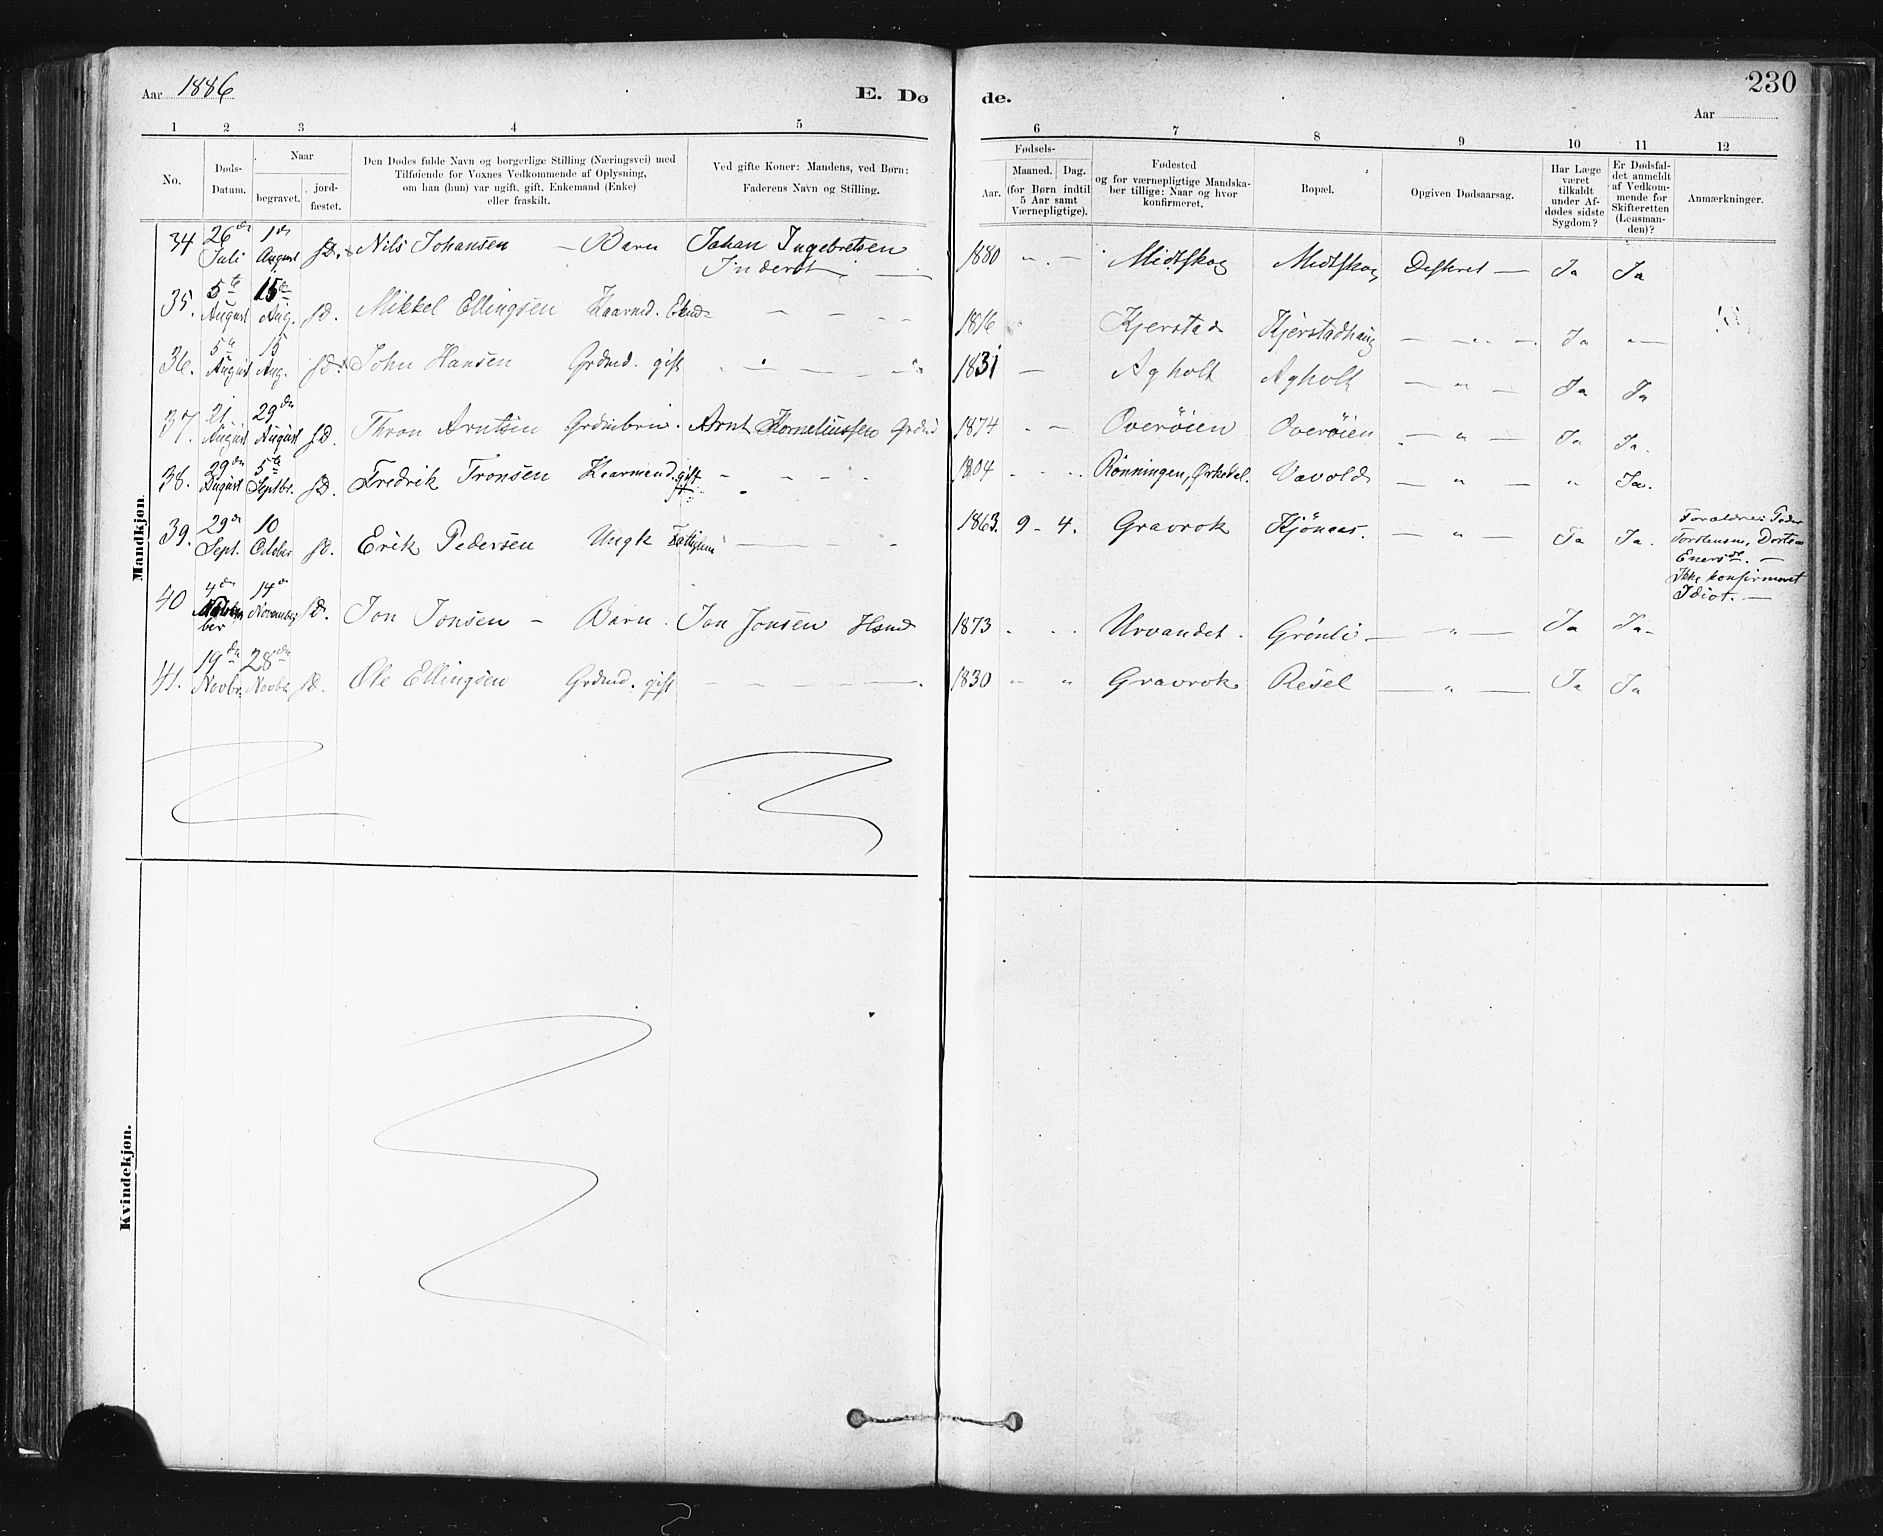 Aar 1886
E. Dø
de.
230
Aar
1 2 3 4 5 6 7 8 9 10 11 12
No.
Døds-
Datum.
Naar
begravet.
jord-
fæstet.
Den Dødes fulde Navn og borgerlige Stilling (Næringsvei) med
Tilføiende for Voxnes Vedkommende af Oplysning,
om han (hun) var ugift, gift, Enkemand (Enke)
eller fraskilt.
Ved gifte Koner: Mandens, ved Børn:
Faderens Navn og Stilling.
Fødsels-
Aar.
Maaned. Dag.
(for Børn indtil
5 Aar samt
Værnepligtige).
Fødested
og for værnepligtige Mandska-
ber tillige: Naar og hvor
konfirmeret.
Bopæl.
Opgiven Dødsaarsag.
Har Læge
været
tilkaldt
under Af-
dødes sidste
Sygdom?
Er Dødsfal-
det anmeldt
af Vedkom-
mende for
Skifteretten
(Lensman-
den)?
Anmærkninger.
Mandkjøn.
34 26de Juli 1de August s.D. Nils Johansen — Barn Johan Ingebretsen Inderst 1880 " - — Midtskog Midtskog Difterit — Ja Ja
35. 5te August 15de Aug. s.D. Mikkel Ellingsen Kaarmd. Ekmd - - - - 1816 Kjerstad Kjerstadhaug — " — Ja " —
36. 5te August 15 Aug. s.D. John Hansen Grdmd. gift - — — - 1831 — Agholt Agholt — " — Ja Ja
37. 21 August 29de August s.D. Thron Arntsen Grdmbrn. Arnt Korneliussen Grdmd 1874 - - Overøien Overøien — " — Ja Ja.
38. 29de August 5te Septbr. s.D. Fredrik Tronsen Kaarmand. gift - - - - 1804 - - - Rönningen, Ørkedal. Vavold — " — " Ja.
39. 29de Sept. 10 October s.D. Erik Pedersen Ungk — — - 1863. 9 - 4. Gravrok Kjönaas. — " — Ja Ja. Forældre: Peder
Torstensen, Dortea
Enersdr. —
Ikke konfirmeret
Idiot. —
40 4de 14de November s.D. Jon Jonsen - Barn. Jon Jonsen Hsmd 1873 - - - Urvandet. Grönli — " — Ja Ja -
41. 19de Novbr. 28de Novbr. s.D. Ole Ellingsen Grdmd. gift — — — 1830 " " Gravrok Resel — " — Ja Ja
Kvindekjøn.